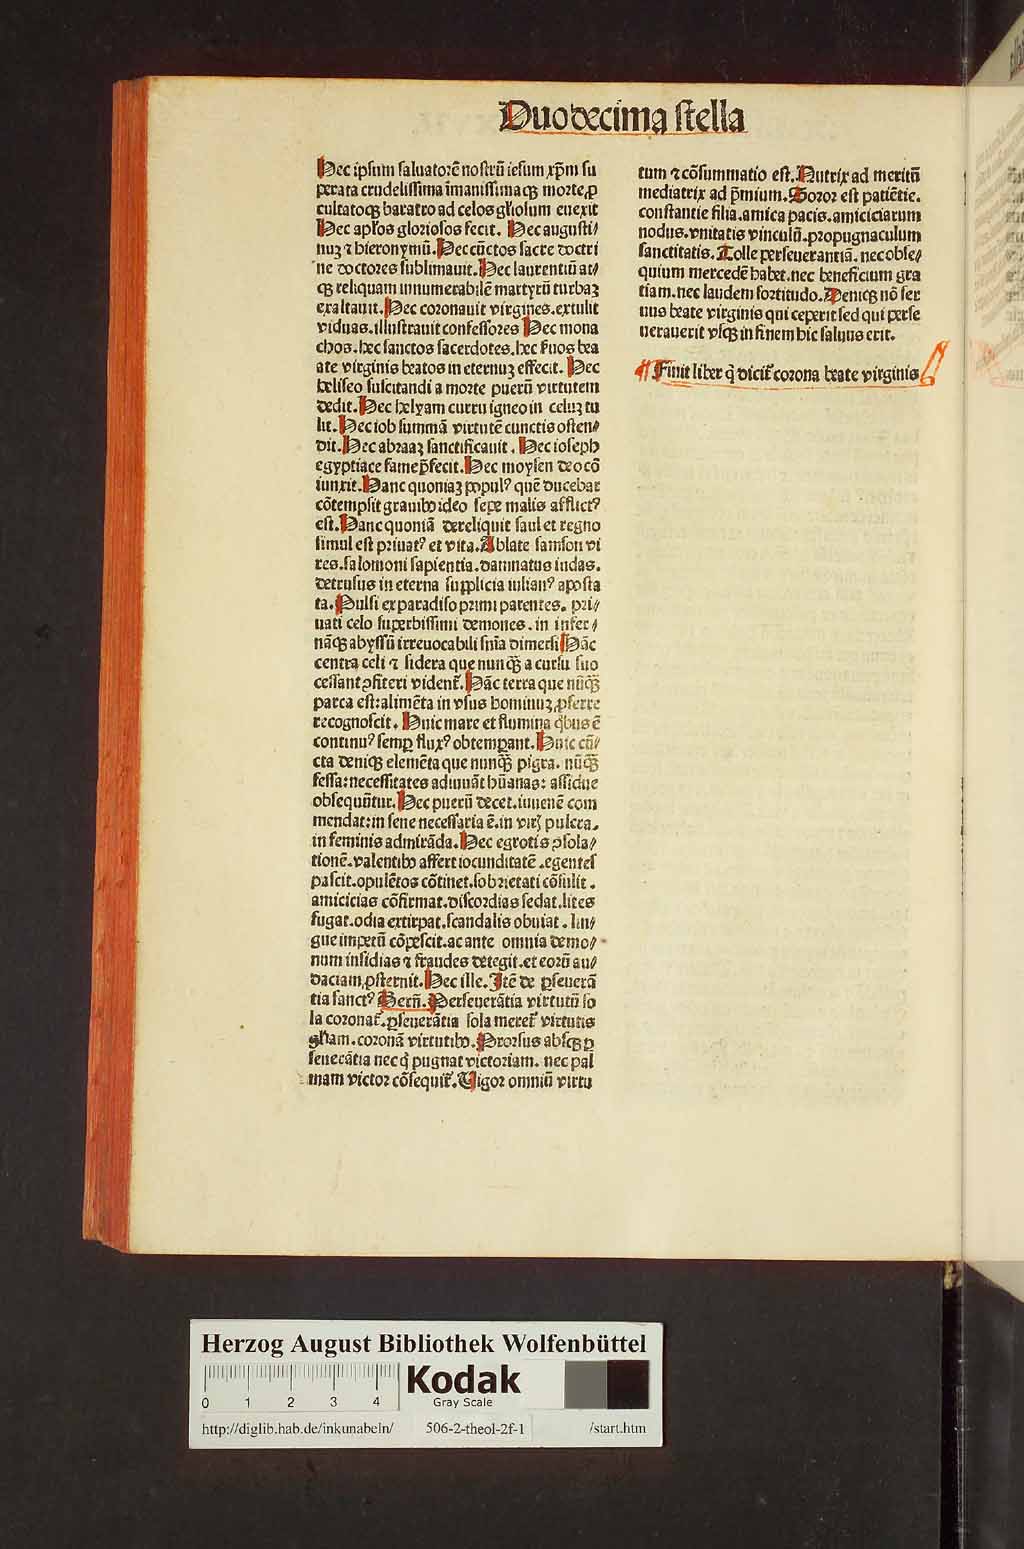 Duodecima ſtella
Hec ipſum ſaluatorē noſtrū ieſum xp̄m ſu
perata crudeliſſima īmaniſſimaqꝫ morte,ꝓ
cultatoqꝫ baratro ad celos gl̓ioſum euexit
Hec apl̓os glorioſos fecit. Hec auguſti⸗
nuꝫ ⁊ hieronymū. Hec cūctos ſacre doctri
ne doctores ſublimauit. Hec laurentiū at⸗
qꝫ reliquam innumerabilē martyrū turbaꝫ
exaltauit. Hec coronauit virgines. extulit
viduas. illuſtrauit confeſſores Hec mona
chos. hec ſanctos ſacerdotes. hec ſ̓uos bea
ate virginis beatos in eternuꝫ effecit. Hec
heliſeo ſuſcitandi a morte puerū virtutem
dedit. Hec helyam curru igneo in celuꝫ tu
lit. Hec iob ſummā virtutē cunctis oſten⸗
dit. Hec abraaꝫ ſanctificauit. Hec ioſeph
egyptiace fame p̄fecit. Hec moyſen deo cō
iunxit. Hanc quoniaꝫ popul⁹ quē ducebat
cōtempſit grauibꝰ ideo ſepe malis afflict⁹
eſt. Hanc quoniā dereliquit ſaul et regno
ſimul eſt priuat⁹ et vita. Ablate ſamſon vi
res. ſalomoni ſapientia. damnatus iudas.
detruſus in eterna ſupplicia iulian⁹ apoſta
ta. Pulſi ex paradiſo primi parentes. pri⸗
uati celo ſuperbiſſimi demones. in infer⸗
nāqꝫ abyſſū irreuocabili ſn̄ia dimerſi Hāc
centra celi ⁊ ſidera que nunqꝫ̄ a curſu ſuo
ceſſant ꝓfiteri vident̄. Hāc terra que nūqꝫ̄
parca eſt: alimēta in vſus hominuꝫ ꝓferre
recognoſcit. Huic mare et flumina qͥbus ē
continu⁹ ſemꝑ flux⁹ obtemꝑant. Huic cū⸗
cta deniqꝫ elemēta que nunqꝫ̄ pigra. nūqꝫ̄
feſſa: neceſſitates adiuuāt hūanas: aſſidue
obſequūtur. Hec puerū decet. iuuenē com
mendat: in ſene neceſſaria ē. in virꝫ pulcra.
in feminis admirāda. Hec egrotis ꝯſola⸗
tionē. valentibꝰ affert iocunditatē. egentes
paſcit. opulētos cōtinet. ſobrietati cōſulit.
amicicias cōfirmat. diſcordias ſedat. lites
fugat. odia extirpat. ſcandalis obuiat. lin⸗
gue impetū cōpeſcit. ac ante omnia demo⸗
num inſidias ⁊ fraudes detegit. et eorū au⸗
daciam ꝓſternit. Hec ille. Itē de ꝑſeuerā
tia ſanct⁹ Bern̄. Perſeuerātia virtutū ſo
la coronat̄. ꝑſeuerātia ſola meret̄ virtutis
gl̓iam. coronā virtutibꝰ. Prorſus abſqꝫ ꝑ
ſeuerātia nec qͥ pugnat victoriam. nec pal
mam victor cōſequit̄. Uigor omniū virtu
tum ⁊ cōſummatio eſt. Nutrix ad meritū
mediatrix ad p̄mium. Soror eſt patiētie.
conſtantie filia. amica pacis. amiciciarum
nodus. vnitatis vinculū. propugnaculum
ſanctitatis. Tolle perſeuerantiā. nec obſe⸗
quium mercedē habet. nec beneficium gra
tiam. nec laudem fortitudo. Deniqꝫ nō ſer
uus beate virginis qui ceperit ſed qui perſe
uerauerit vſqꝫ in finem hic ſaluus erit.
¶ Finit liber q̄ dicit̄ corona beate virginis
Herzog August Bibliothek Wolfenbüttel
0 1 2 3 4
Kodak
Gray Scale
http://diglib.hab.de/inkunabeln/ 506-2-theol-2f-1 /start.htm